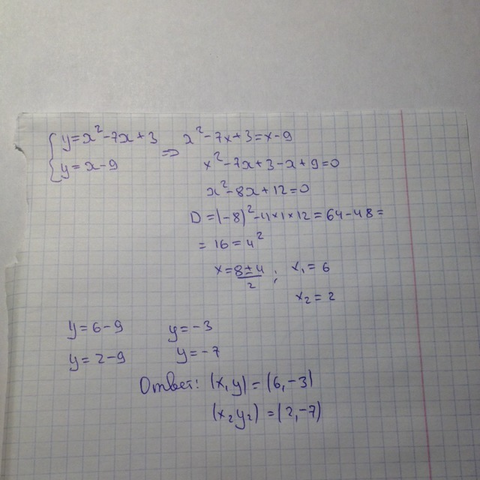 { y=x²-7x+3 => x²-7x+3=x-9
{ y=x-9
x²-7x+3-x+9=0
x²-8x+12=0
D=(-8)²-4×1×12=64-48=
=16=4²
x=8±4/2 ; x₁=6
x₂=2
y=6-9 y=-3
y=2-9 y=-7
Ответ: (x,y)=(6,-3)
(x₂y₂)=(2,-7)